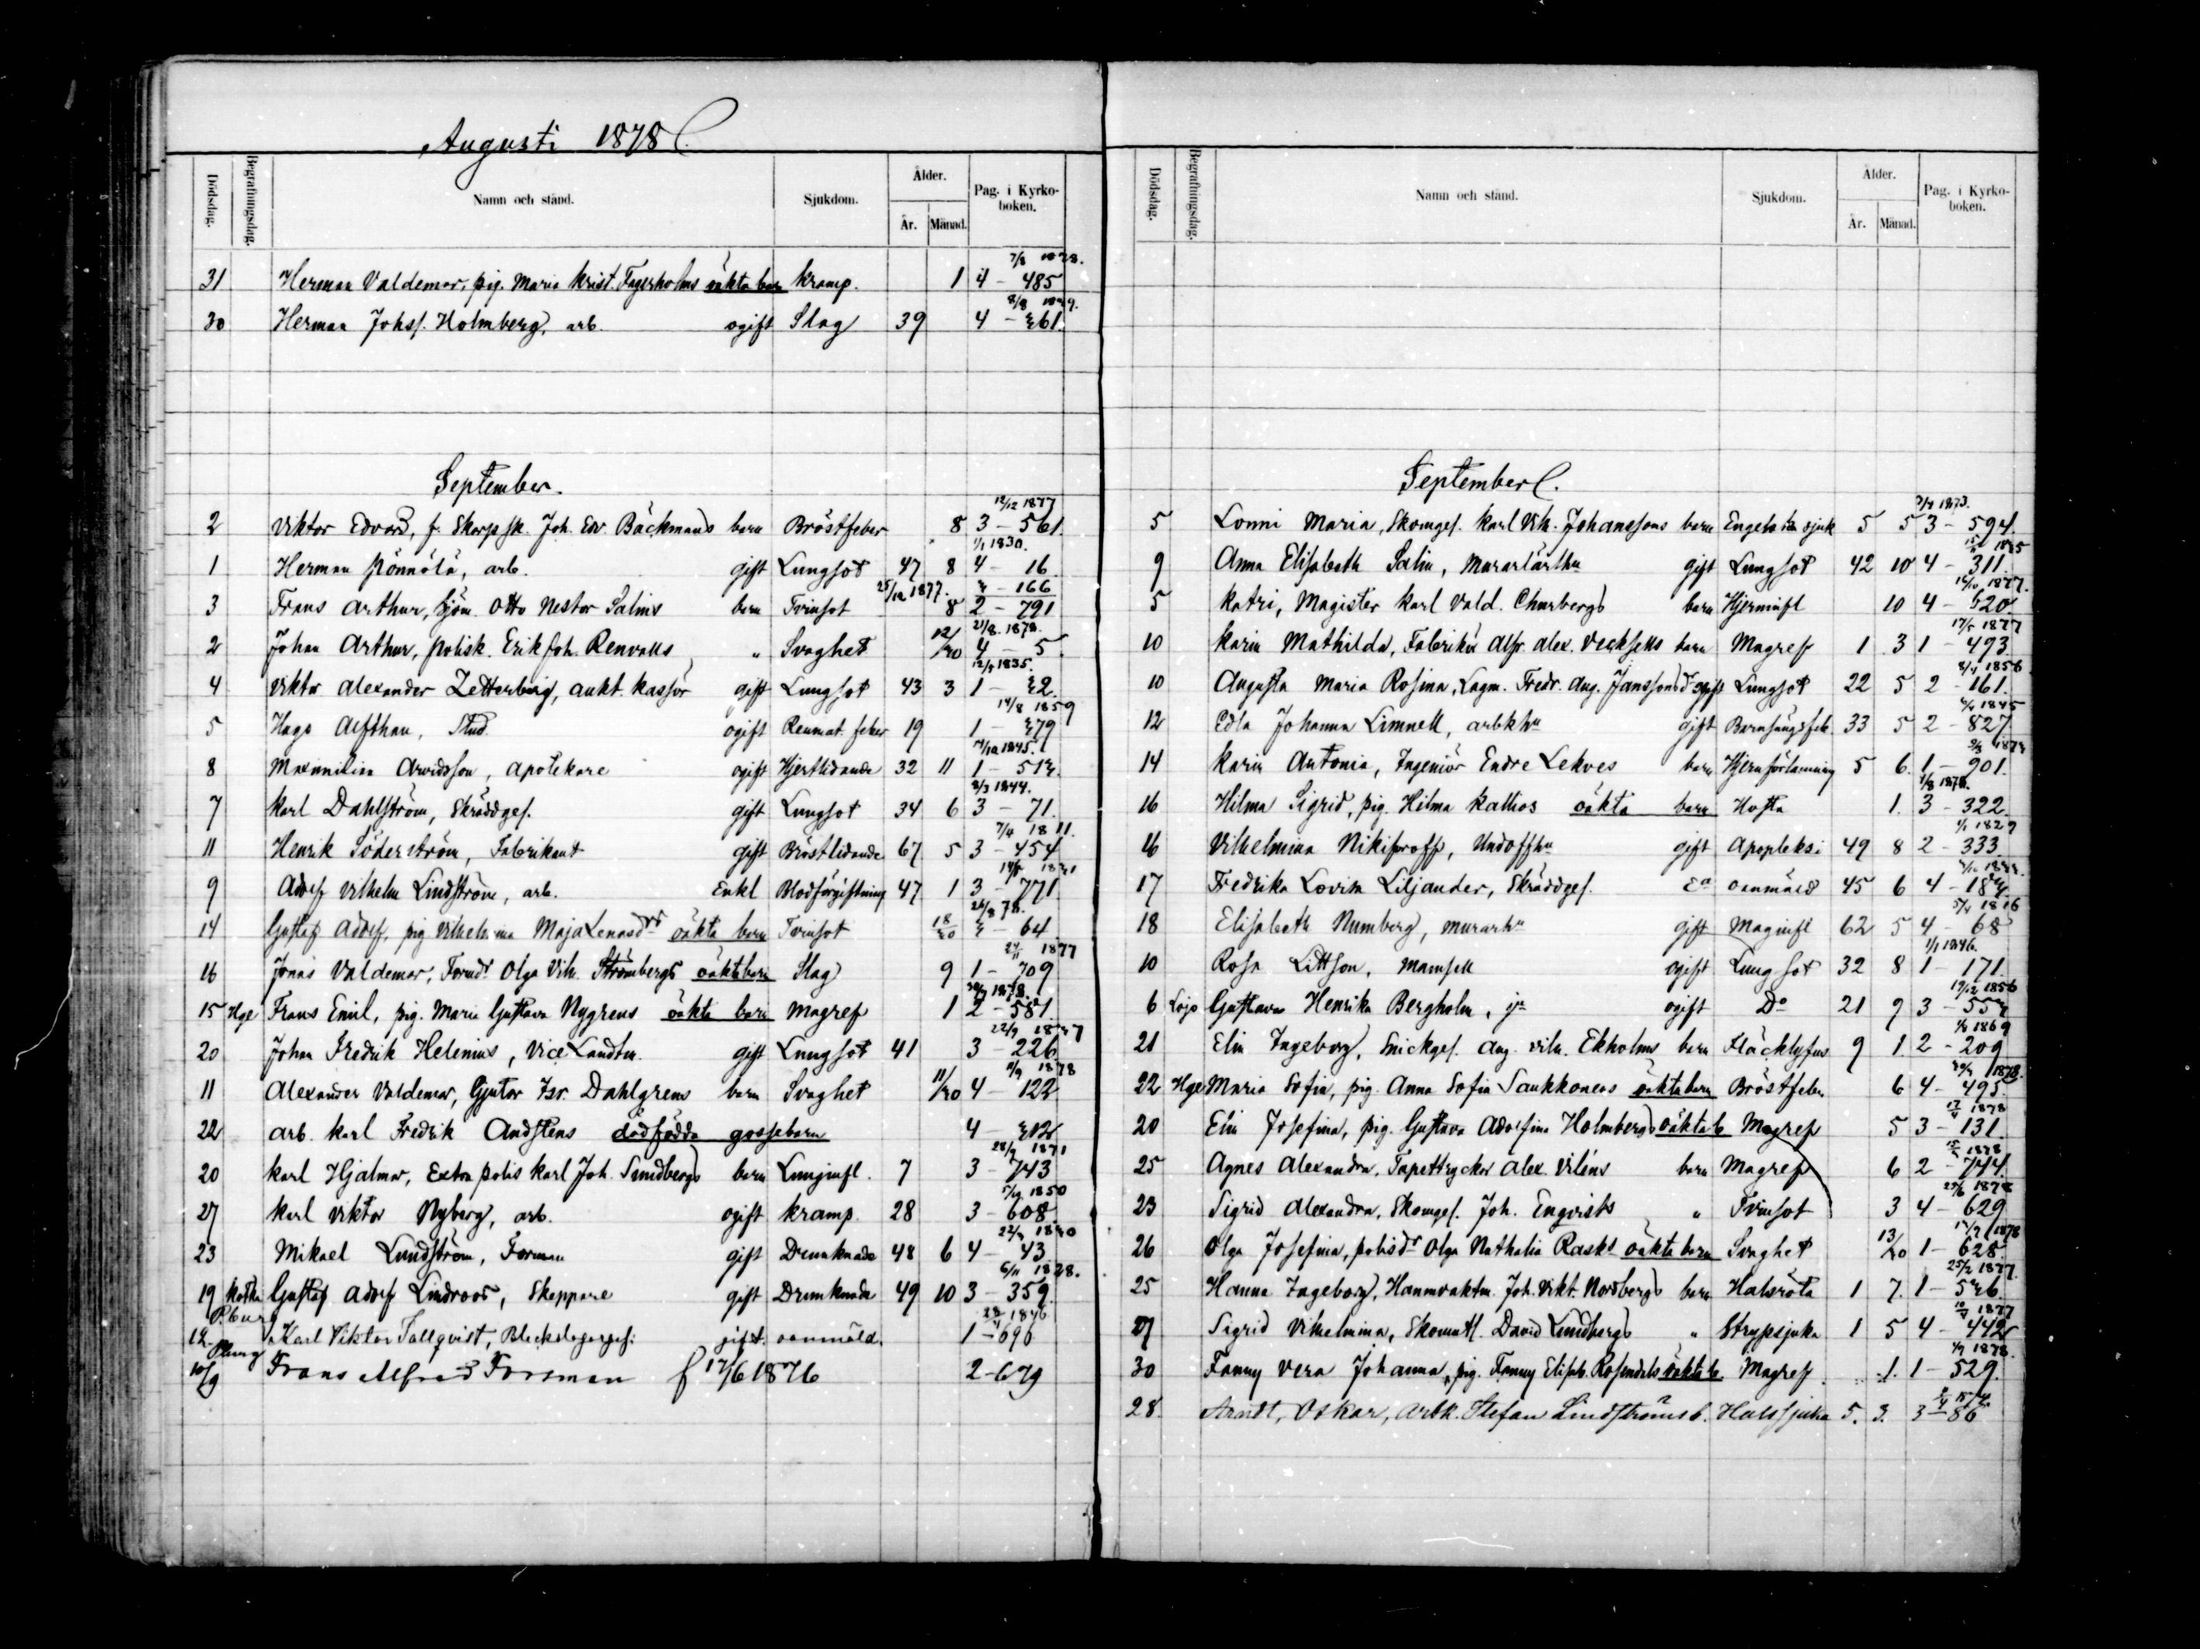 Augusti 1878
Dödsdag. Begrafningsdag. Namn och stånd. Sjukdom. Ålder. År. Månad. Pag. i Kyrko-boken.
31 Herman Valdemar, pig. Maria Krist. Fagerholms oäkta barn kramp. 1 4 – 485
30 Herman Johss. Holmberg, arb. ogift Slag 39 4 – 261.
September.
12/12 1877
2 Viktor Edvard, f. Skarpsk. Joh. Edv. Bäckmans barn Bröstfeber 8 3 – 561.
1/1 1830.
1 Herman Pönnälä, arb. gift Lungsot 47 8 4 – 16
25/12 1877. 2 – 166
3 Frans Arthur, Sjöm. Otto Nestor Salins barn Tvinsot 8 2 – 791
21/8. 1878.
2 Johan Arthur, polisk. Erik Joh. Renvalls " Svaghet 12/30 4 – 5.
12/5 1835.
4 Viktor Alexander Zetterberg, aukt. kassör gift Lungsot 43 3 1 – 22.
14/8 1859
5 Hugo Alfthan, Stud. ogift Reumat. feber 19 1 – 279
14/10 1845.
8 Maximilian Arvidsson, apotekare ogift Hjertlidande 32 11 1 – 512.
2/3 1844.
7 Karl Dahlström, Skräddges. gift Lungsot 34 6 3 – 71.
7/4 1811.
11 Henrik Söderström, Fabrikant gift Bröstlidande 67 5 3 – 454
9 Adolf Vilhelm Lindström, arb. Enkl Blodförgiftning 47 1 3 – 771.
26/8 78.
14 Gustaf Adolf, pig Vilhelmina Maja Lenasdr oäkta barn Tvinsot 18/30 2 – 64
24/11 1877
16 Jonas Valdemar, Tornd. Olga Vilh. Strömbergs oäkta barn Slag 9 1 – 709
15 Hge Frans Emil, pig. Maria Gustava Nygrens oäkta barn Magref 1 2 – 581.
20 Johan Fredrik Helenius, Vice Landtm. gift Lungsot 41 3 – 226
9/9 1878
11 Alexander Valdemar, Gjutar Isr. Dahlgrens barn Svaghet 11/30 4 – 122
22 arb. Karl Fredrik Andstens dödfödda gossebarn 4 – 212
28/9 1871
20 Karl Hjalmar, Extra polis Karl Joh. Sundbergs barn Lunginfl. 7 3 – 743
5/12 1850
27 Karl Viktor Nyberg, arb. ogift kramp. 28 3 – 608
23 Mikael Lundström, Forman gift Drunknade 48 6 4 – 43.
6/11 1828.
19 Kotka Gustaf Adolf Lindroos, Skeppare gift Drunknade 49 10 3 – 359.
P.burg
12 Karl Viktor Tallqvist, Bleckslagarges. gift. oanmäld. 1 – 696
P.burg
10/9 Frans Alfred Forsman f 17/6 1876 2 – 679
Dödsdag. Begrafningsdag. Namn och stånd. Sjukdom. Ålder. År. Månad. Pag. i Kyrko-boken.
September.
5 Lonni Maria, Skomges. Karl Vilh. Johanssons barn Engelska sjuk 5 5 3 – 594.
9 Anna Elisabeth Salin, Murarlärlhu gift Lungsot 42 10 4 – 311.
5 Katri, Magister Karl Vald. Churbergs barn Hjerninfl 10 4 – 620
17/5 1877
10 Karin Mathilda, Fabrikör Alfr. Alex. Vecksells barn Magref 1 3 1 – 493.
8/4 1856
10 Augusta Maria Rosina, Lagm. Fredr. Aug. Janssons d. ogift Lungsot 22 5 2 – 161.
12 Edla Johanna Limnell, arbkhu gift Barnsängsfeb. 33 5 2 – 827
14 Karin Antonia, Ingeniör Endre Lekves barn Hjernförlamning 5 6. 1 – 901.
16 Hilma Sigrid, pig. Hilma Kallios oäkta barn Hosta 1. 3 – 322
1/1 1829
16 Vilhelmina Nikiforoff, Undoffhu gift Apopleksi 49 8 2 – 333
17 Fredrika Lovisa Liljander, Skräddges. Ea oanmäld 45 6 4 – 182.
5/4 1816
18 Elisabeth Numberg, murarhu gift Maginfl 62 5 4 – 68
1/1 1846.
10 Rosa Littson, Mamsell ogift Lungsot 32 8 1 – 171.
19/12 1856
6 Lojo Gustava Henrika Bergholm, ja ogift Do 21 9 3 – 552
21 Elin Ingeborg, Snickges. Aug. Vilh. Ekholms barn Fläcktyfus 9 1. 2 – 209
22 Hge Maria Sofia, pig. Anna Sofia Saukkonens oäkta barn Bröstfeber 6 4 – 495.
17/4 1878
20 Elin Josefina, pig. Gustava Adolfina Holmbergs oäkta b. Magref 5 3 – 131.
25 Agnes Alexandra, Tapettryckar Alex. Viléns barn Magref 6 2 – 744.
25/6 1878
23 Sigrid Alexandra, Skomges. Joh. Enqvists " Tvinsot 3 4 – 629
26 Olga Josefina, polisdr Olga Nathalia Rasks oäkta barn Svaghet 13/30 1 – 628.
25/2 1877.
25 Hanna Ingeborg, Hamnvaktm. Joh. Vikt. Nordbergs barn Halsröta 1 7. 1 – 526.
27 Sigrid Vilhelmina, Skomakl. David Lundbergs " Strypsjuka 1 5 4 – 442
30 Fanny Vera Johanna, pig. Fanny Elisab. Rosendals oäkta b. Magref 1. 1 – 529.
28. Arndt, Oskar, arbk. Stefan Lindströms b. Halssjuka 5. 5. 3 – 86